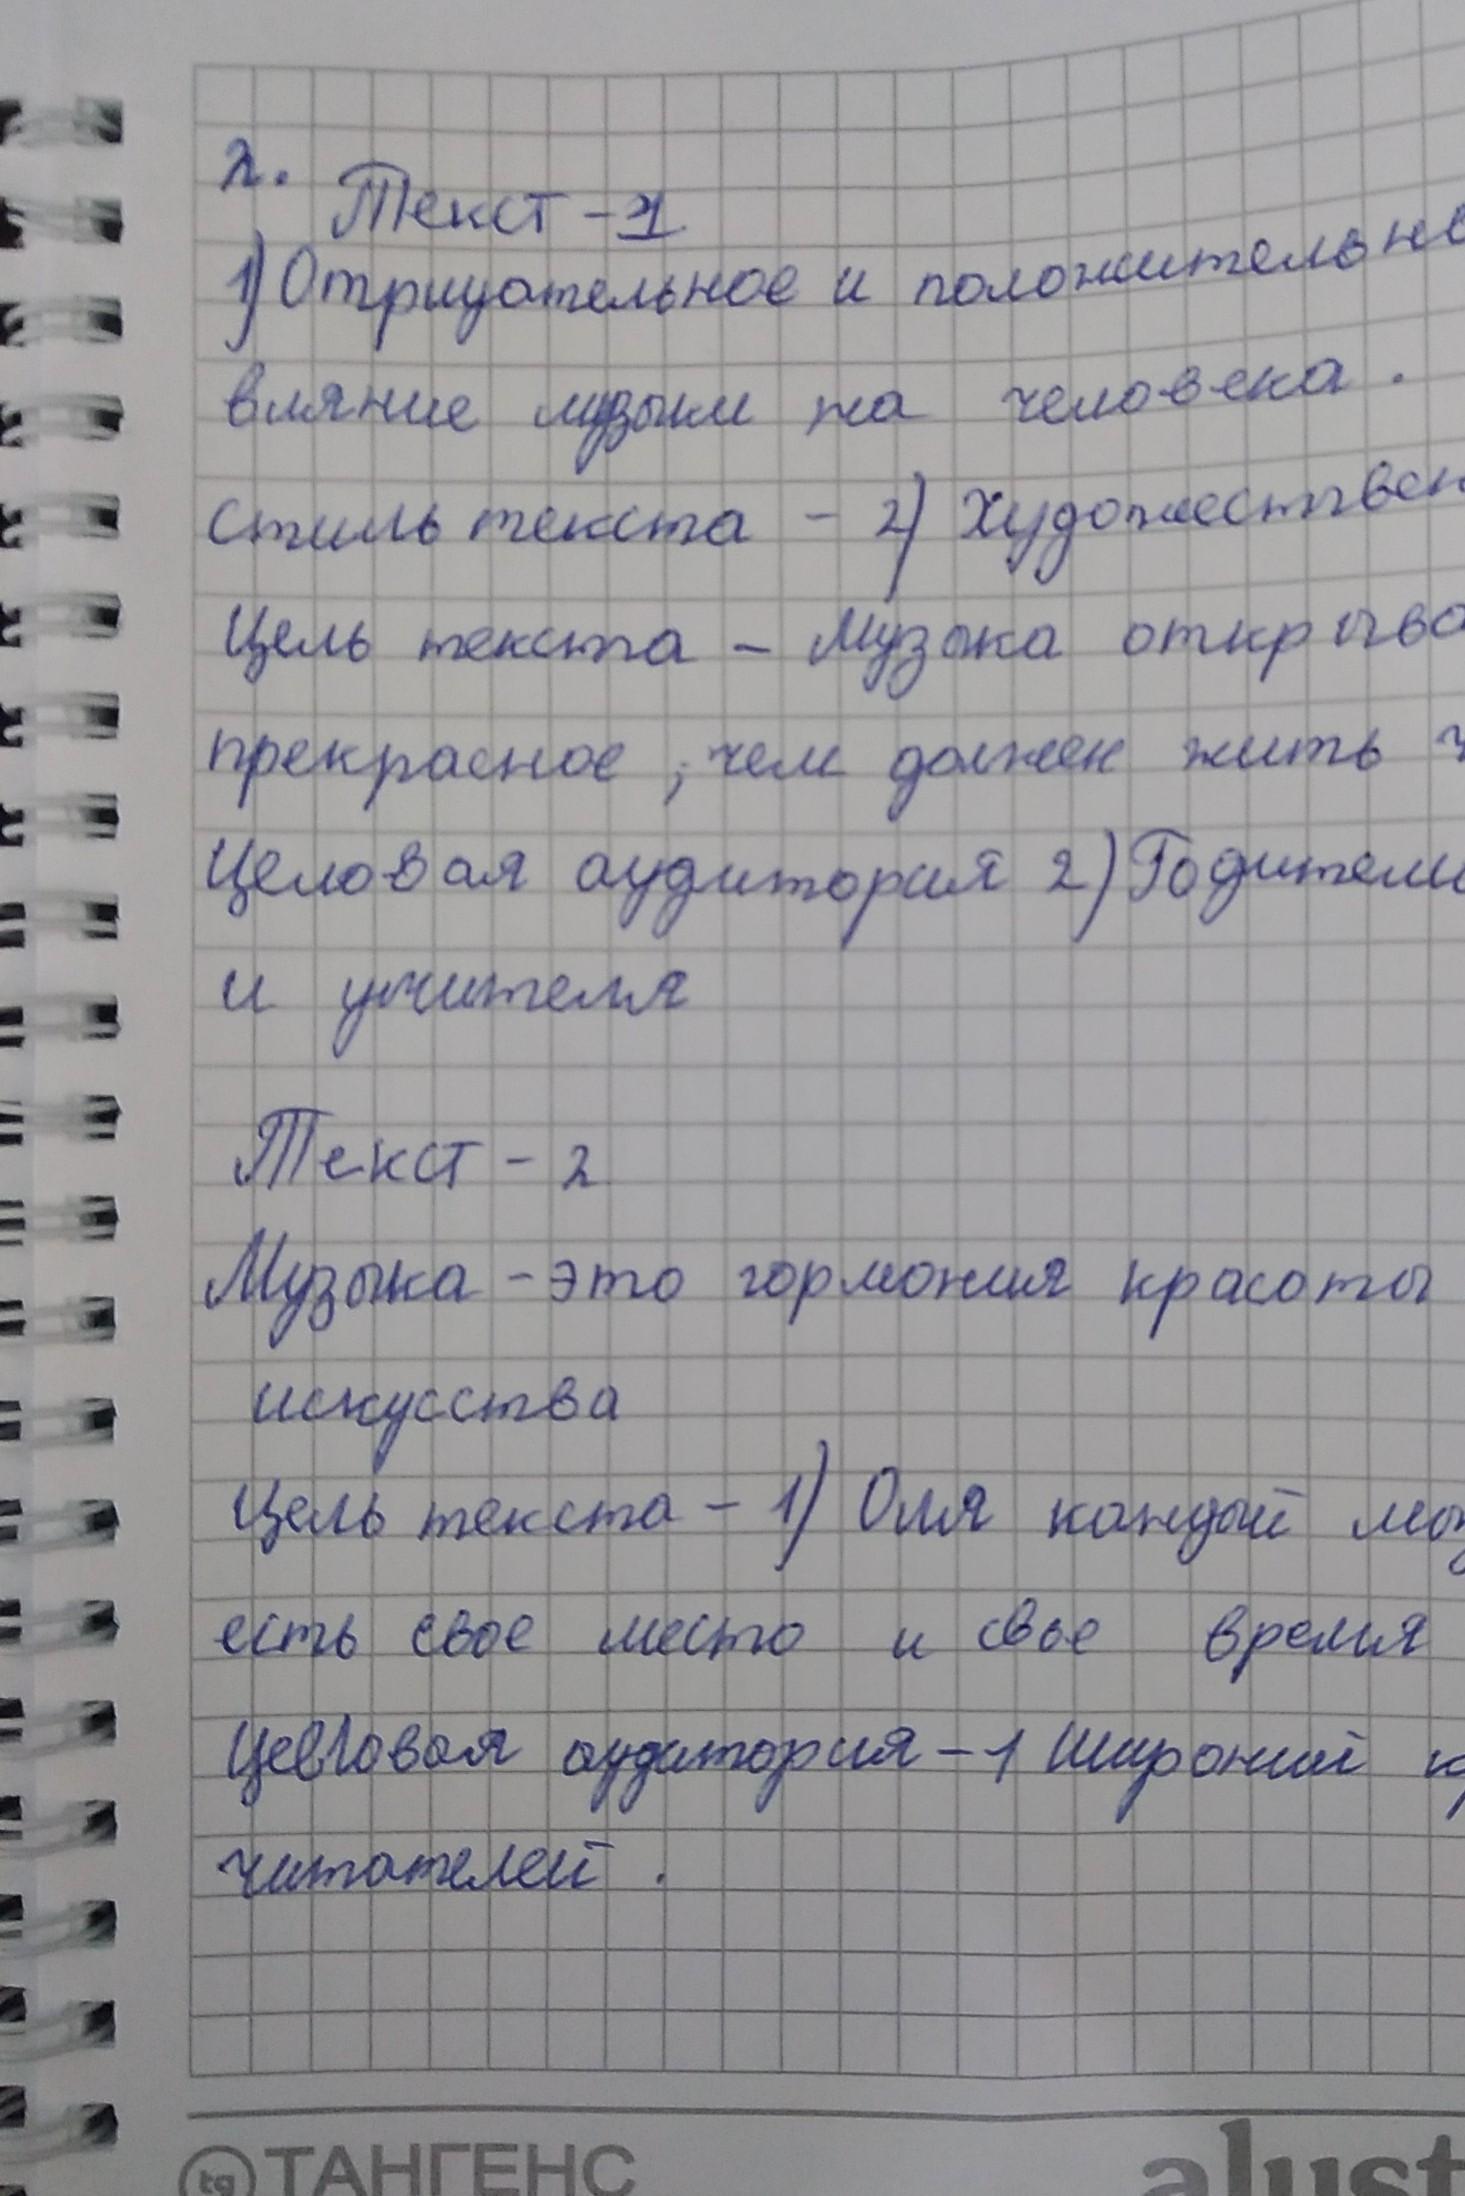 2.
Текст - 1
1) Отрицательное и положительно
влияние музыки на человека.
стиль текста - 2) Художествен
Цель текста - Музыка открыва
прекрасное, чем должен жить ч
Целовая аудитория 2) Годители
и учителя
Текст - 2
Музыка - это гормония красоты
искусства
Цель текста - 1) Оля каждый
есть свое место и свое время
Цевловая аудитория - 1 Широкий
читателей.
tg ТАНГЕНС
alust